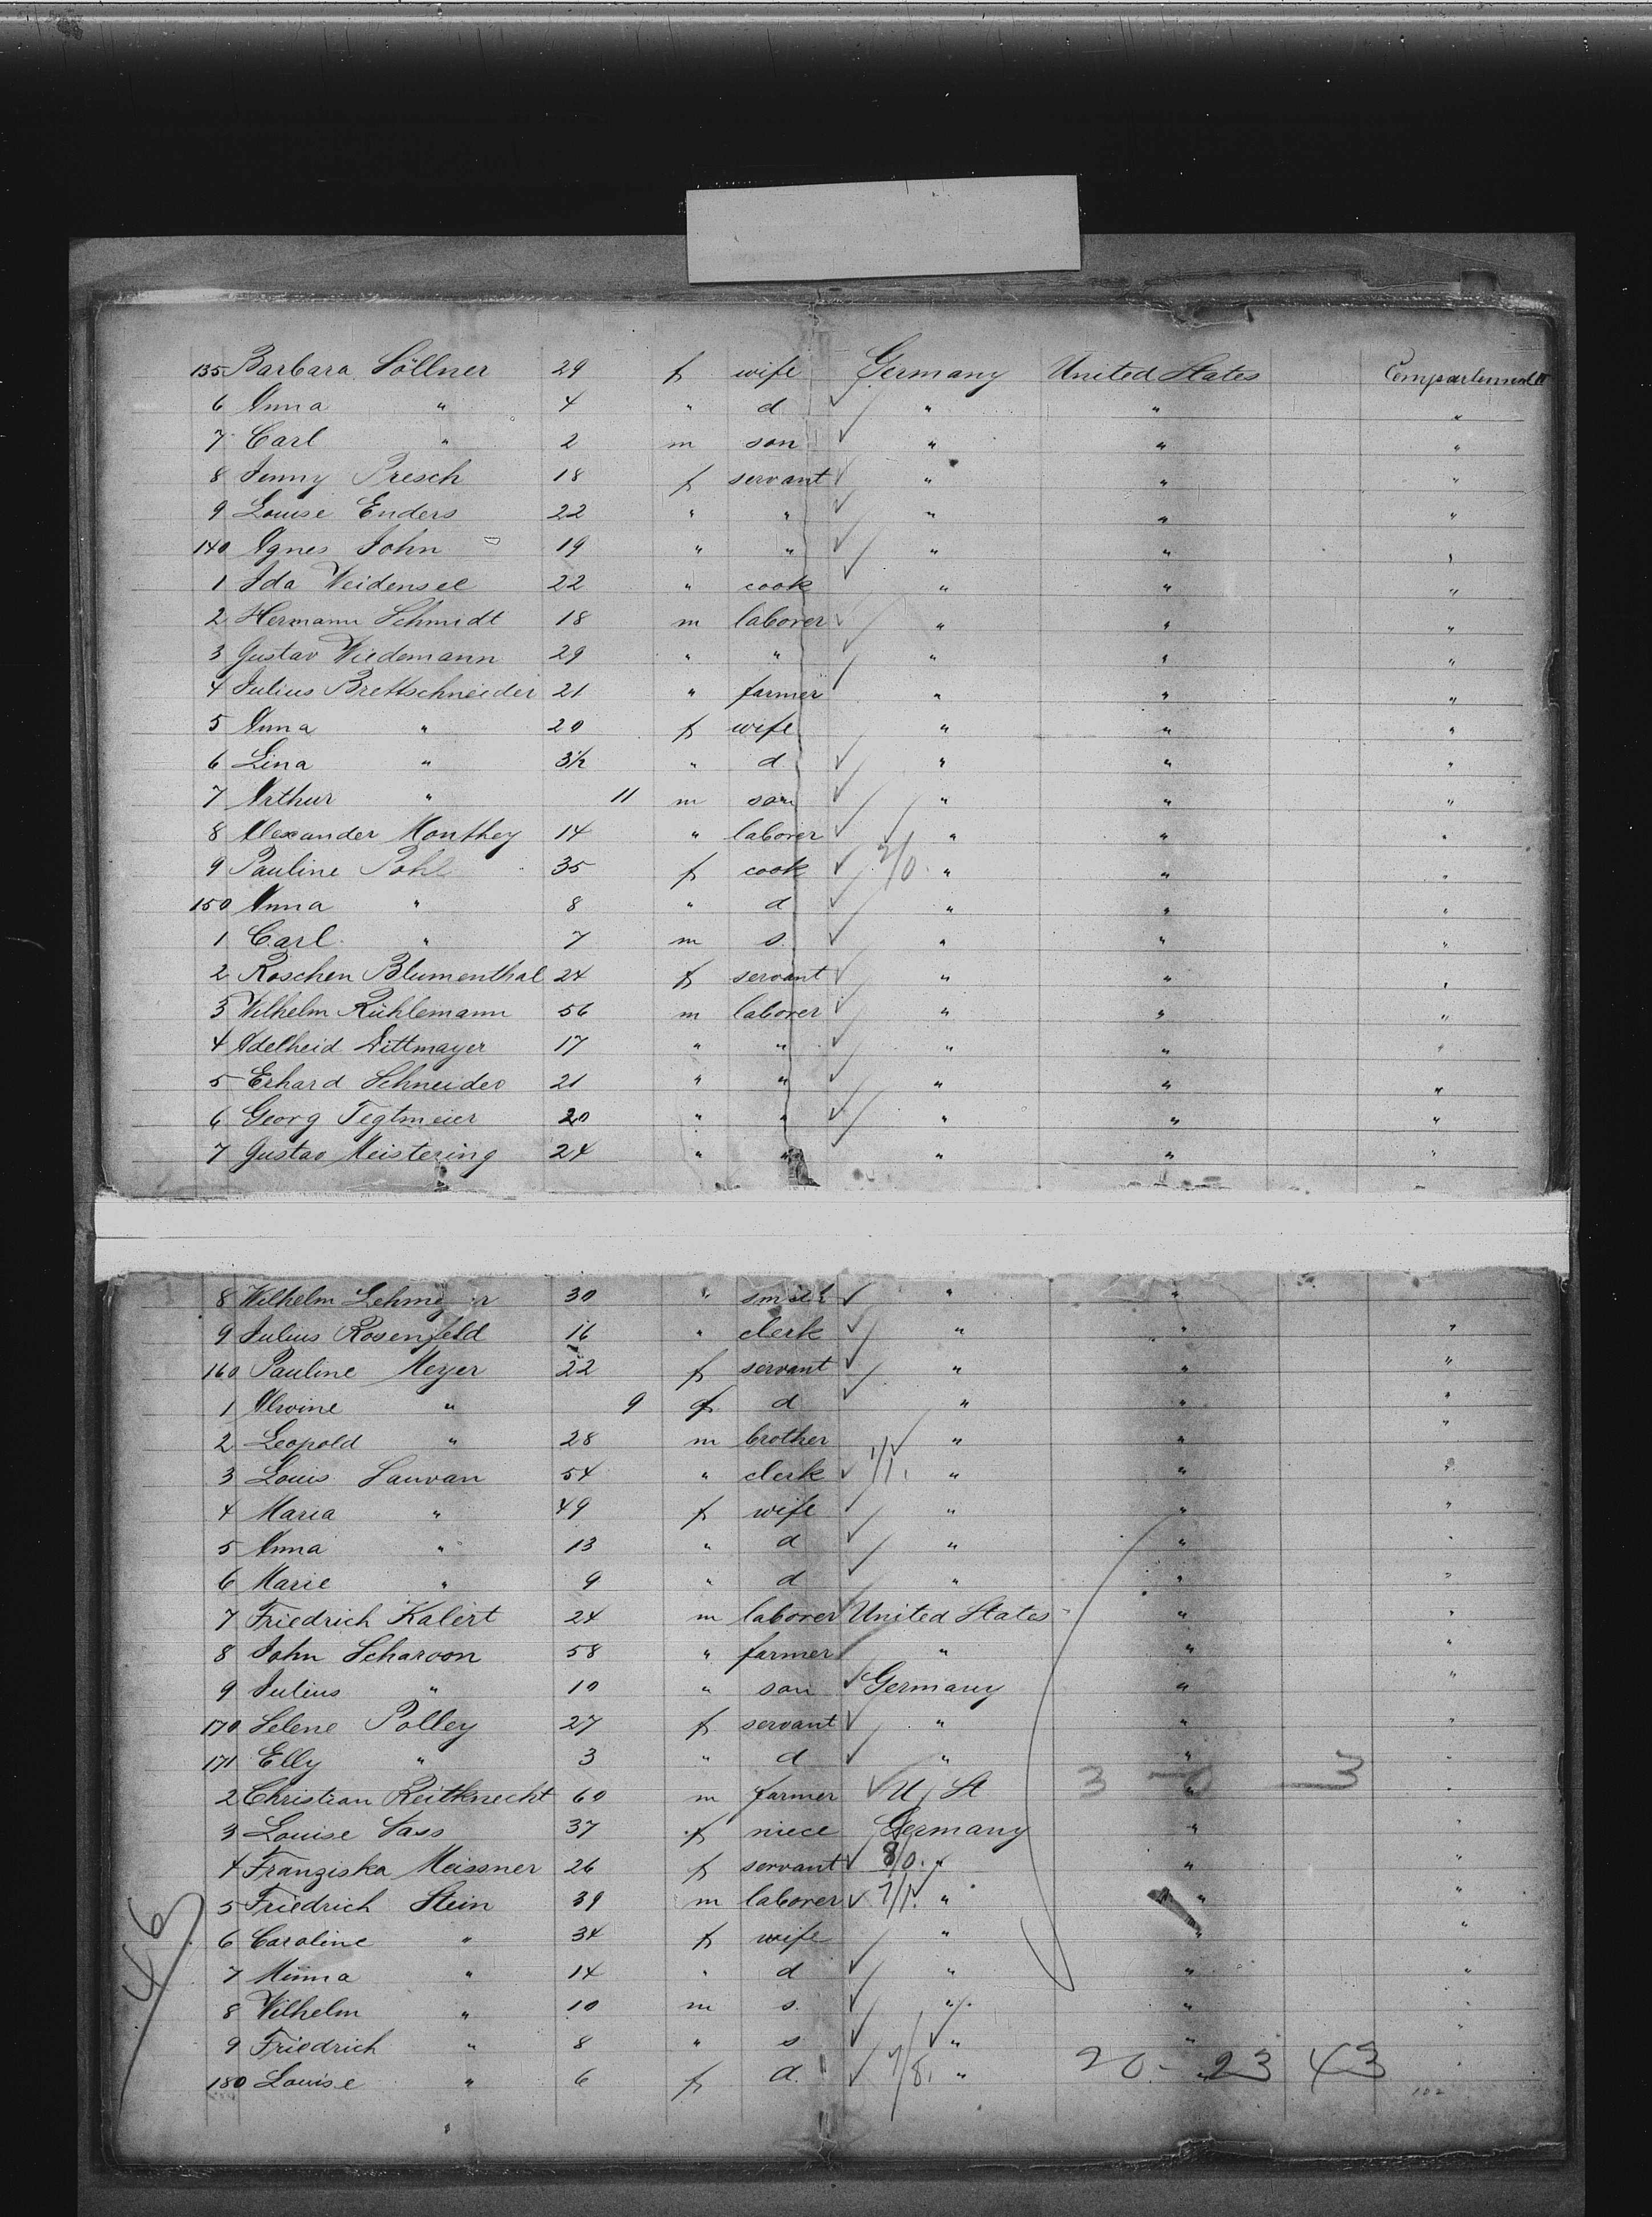 135 Barbara Söllner 29 f wife Germany United States Compartement II
6 Anna " 4 " d " " "
7 Carl " 2 m son " " "
8 Jenny Presch 18 f servant " " "
9 Louise Enders 22 " " " " "
140 Agnes John 19 " " " " "
1 Ida Weidensee 22 " cook " " "
2 Hermann Schmidt 18 m laborer " " "
3 Gustav Wiedemann 29 " " " " "
4 Julius Brettschneider 21 " farmer " " "
5 Anna " 20 f wife " " "
6 Lina " 3½ " d " " "
7 Arthur " 11 m son " " "
8 Alexander Monthey 14 " laborer " " "
9 Pauline Pohl 35 f cook 2/0. " " "
150 Anna " 8 " d " " "
1 Carl " 7 m s. " " "
2 Roschen Blumenthal 24 f servant " " "
3 Wilhelm Rühlemann 56 m laborer " " "
4 Adelheid Dittmayer 17 " " " " "
5 Erhard Schneider 21 " " " " "
6 Georg Tegtmeier 20 " " " " "
7 Gustav Meistering 24 " " " " "
8 Wilhelm 30 " smith " "
9 Julius Rosenfeld 16 " clerk " " "
160 Pauline Meyer 22 f servant " " "
1 Alwine " 9 f d " " "
2 Leopold " 28 m brother " " "
3 Louis Sauvan 54 " clerk 1/1. " " "
4 Maria " 49 f wife " " "
5 Anna " 13 " d " " "
6 Marie " 9 " d " " "
7 Friedrich Kalert 24 m laborer United States " "
8 John Scharoon 58 " farmer " " "
9 Julius " 10 " son Germany " "
170 Selene Polley 27 f servant " " "
171 Elly " 3 " d " " "
2 Christian Reitknecht 60 m farmer U St 3 - 0 3 " "
3 Louise Sass 37 f niece Germany " "
4 Franziska Meissner 26 f servant 8/0. " " "
5 Friedrich Stein 39 m laborer 1/1. " " "
6 Caroline " 34 f wife " " "
7 Minna " 14 " d " " "
8 Wilhelm " 10 m s. " " "
9 Friedrich " 8 " s " " "
180 Louise " 6 f d. " 20 - 23 43 "
46